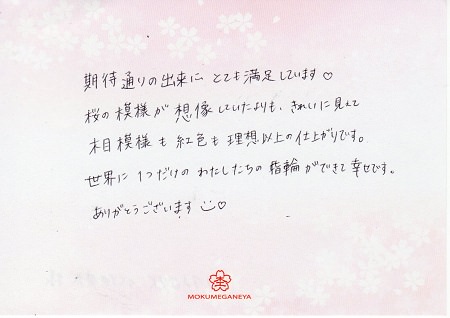 期待通りの出来に とても満足しています♡
桜の模様が 想像していたよりも、きれいに見えて
木目模様も 紅色も 理想以上の仕上がりです。
世界に 1つだけの わたしたちの 指輪ができて 幸せです。
ありがとうございます ♡
MOKUMEGANEYA